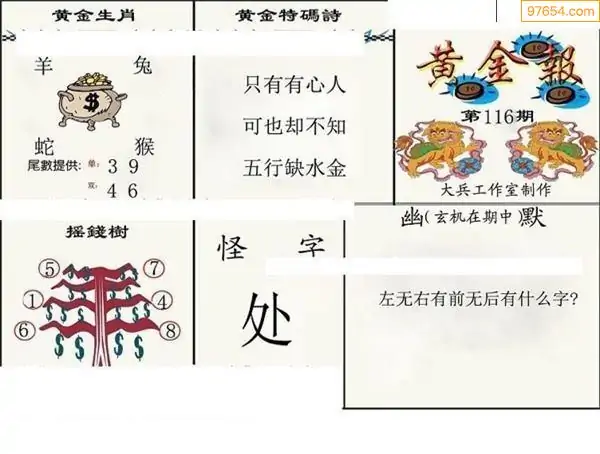 97654.com
黄金生肖
羊 兔
$
蛇 猴
尾數提供: 单: 3 9
双: 4 6
黄金特碼詩
只有有心人
可也却不知
五行缺水金
黄金報
第116期
大兵工作室制作
摇錢樹
⑤ ⑦
① ④
⑥ ⑧
$ $ $ $ $ $ $ $
怪 字
处
幽(玄机在期中)默
左无右有前无后有什么字?